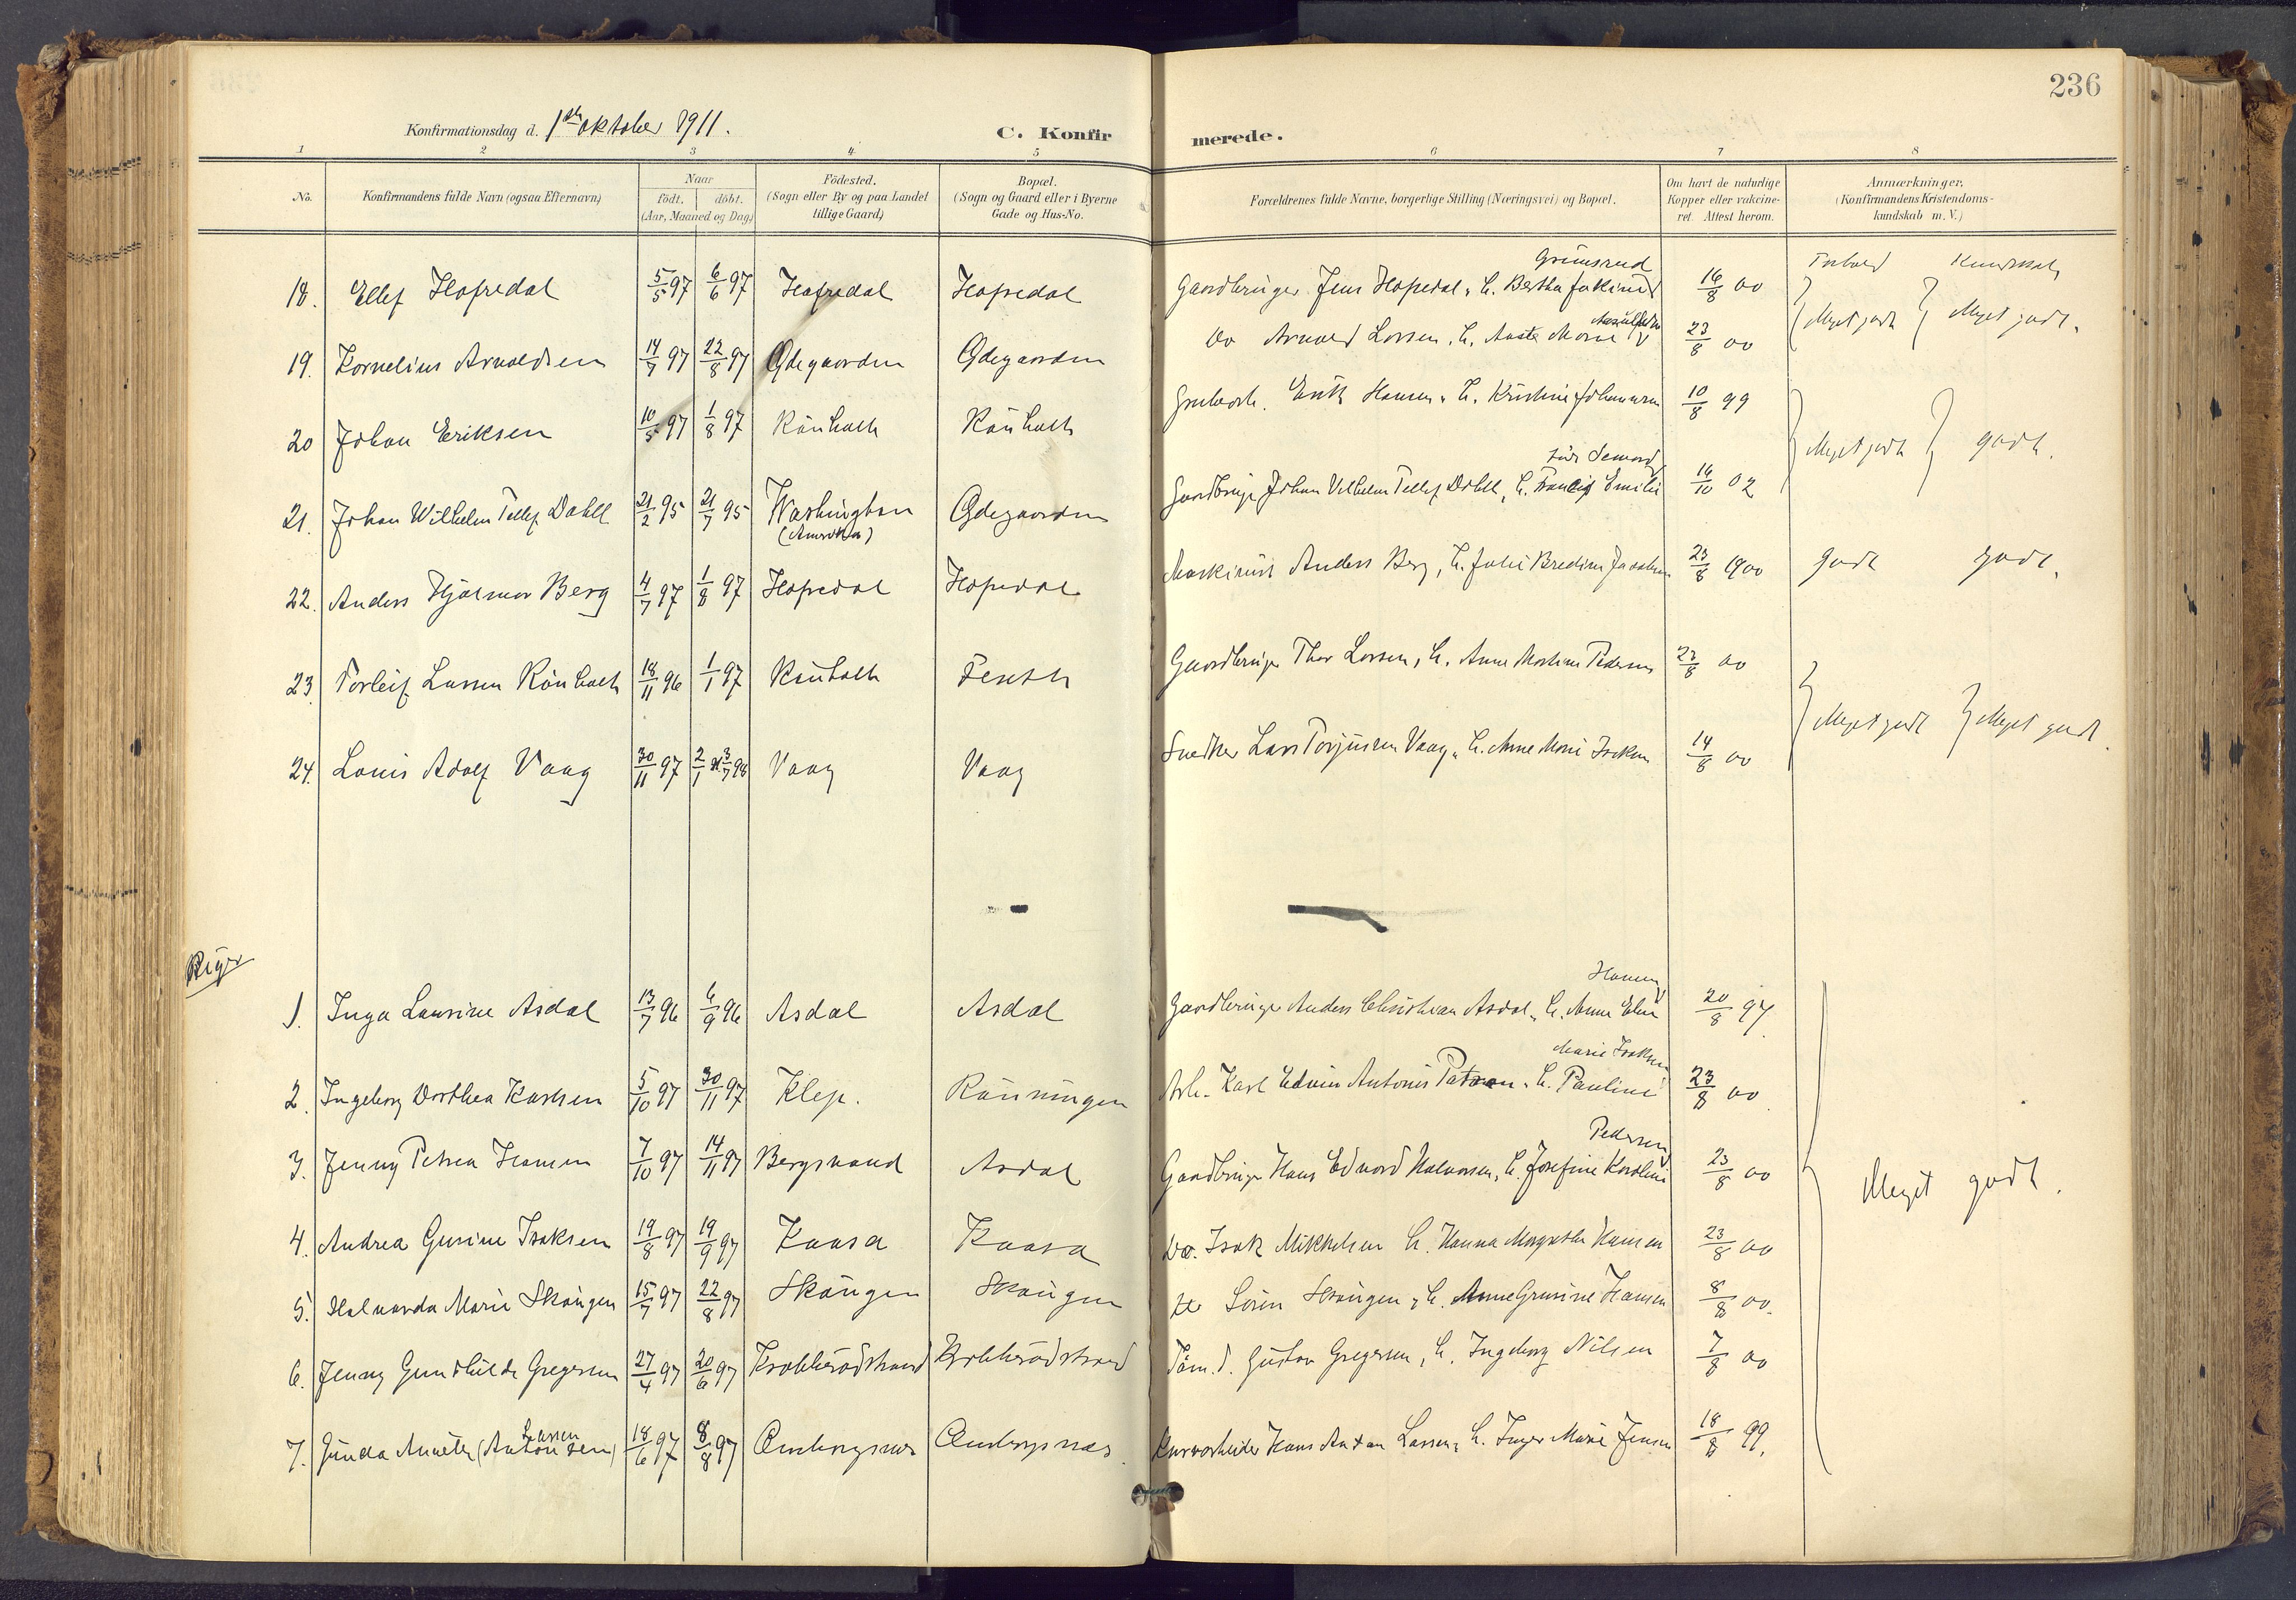 236
Konfirmationsdag d. 1ste oktober 1911.
C. Konfirmerede.
1 2 3 4 5 6 7 8
No. Konfirmandens fulde Navn (ogsaa Efternavn) Naar født, døbt. (Aar, Maaned og Dag) Fødested. (Sogn eller By og paa Landet tillige Gaard) Bopæl. (Sogn og Gaard eller i Byerne Gade og Hus-No. Forældrenes fulde Navne, borgerlige Stilling (Næringsvei) og Bopæl. Om havt de naturlige Kopper eller vakcineret. Attest herom. Anmærkninger. (Konfirmandens Kristendomskundskab m. V.)
Forhold Kundskab
Grimsrud
18. Ellef Hopedal 5/5 97 6/6 97 Hopedal Hopedal Gaardbruger Jens Hopedal, h. Bertha Jokine 16/8 00 Meget godt Meget godt.
19. Kornelius Arnoldsen 14/7 97 22/8 97 Ødegaarden Ødegaarden Do Arnold Larsen, h. Marie 23/8 00
20 Johan Eriksen 10/5 97 1/8 97 Rønholt Rønholt Grubearb. Erik Hansen, h. Kristine Johannesen 10/8 99 Meget godt godt.
21. Johan Wilhelm Tellef Dahll 21/2 95 21/7 95 Washington (Amerika) Ødegaarden Gaardbruger Johan Vilhelm Tellef Dahll, h. Francis Emilie 16/10 02
22. Anders Hjalmar Berg 4/7 97 1/8 97 Hopedal Hopedal Maskinist Anders Berg, h. Julie Bredine 23/8 1900 godt godt.
23. Torleif Larsen Rønholt 18/11 96 1/1 97 Rønholt Feset Gaardbruger Thor Larsen, h. Anne Martine Pedersen 23/8 00 Meget godt Meget godt.
24. Louis Adolf Vaag 30/11 97 2/1 3/7 98 Vaag Vaag Snedker Lars Torjusen Vaag, h. Anne Marie Isaksen 14/8 00
Piger
Hansen
1. Inga Laurine Asdal 13/7 96 6/9 96 Asdal Asdal Gaardbruger Anders Christian Asdal, h. Anne Eline 20/8 97
Marie Isaksen
2. Ingeborg Dorthea Karlsen 5/10 97 30/11 97 Klep. Rønningen Arb. Karl Edvin Antonis h. Pauline 23/8 00
Pedersen
3. Jenny Petrea Hansen 7/10 97 14/11 97 Bergsvand Asdal Gaardbruger Hans Edvard Halvorsen, h. Josefine Karoline 23/8 00 Meget godt.
4. Andrea Gurine Isaksen 19/8 97 19/9 97 Kaasa Kaasa Do. Isak Mikkelsen h. Hanna Margrethe Hansen 23/8 00
5. Halvarda Marie Skøugen 15/7 97 22/8 97 Skøugen Skøugen Søren Skøugen, h. Anne Grurine Hansen 8/8 00.
6. Jenny Gunhilde Gregersen 27/4 97 20/6 97 Krabberødstrand Krabberødstrand Tøm. d. Gustav Gregersen, h. Ingeborg Nilsen 7/8 00
7. Ginda Anette (Antonsen) Larsen 18/6 97 8/8 97 Omborgsnæs Omborgsnæs. Hans Anton Larsen, h. Inger Marie Jensen 18/8 99.